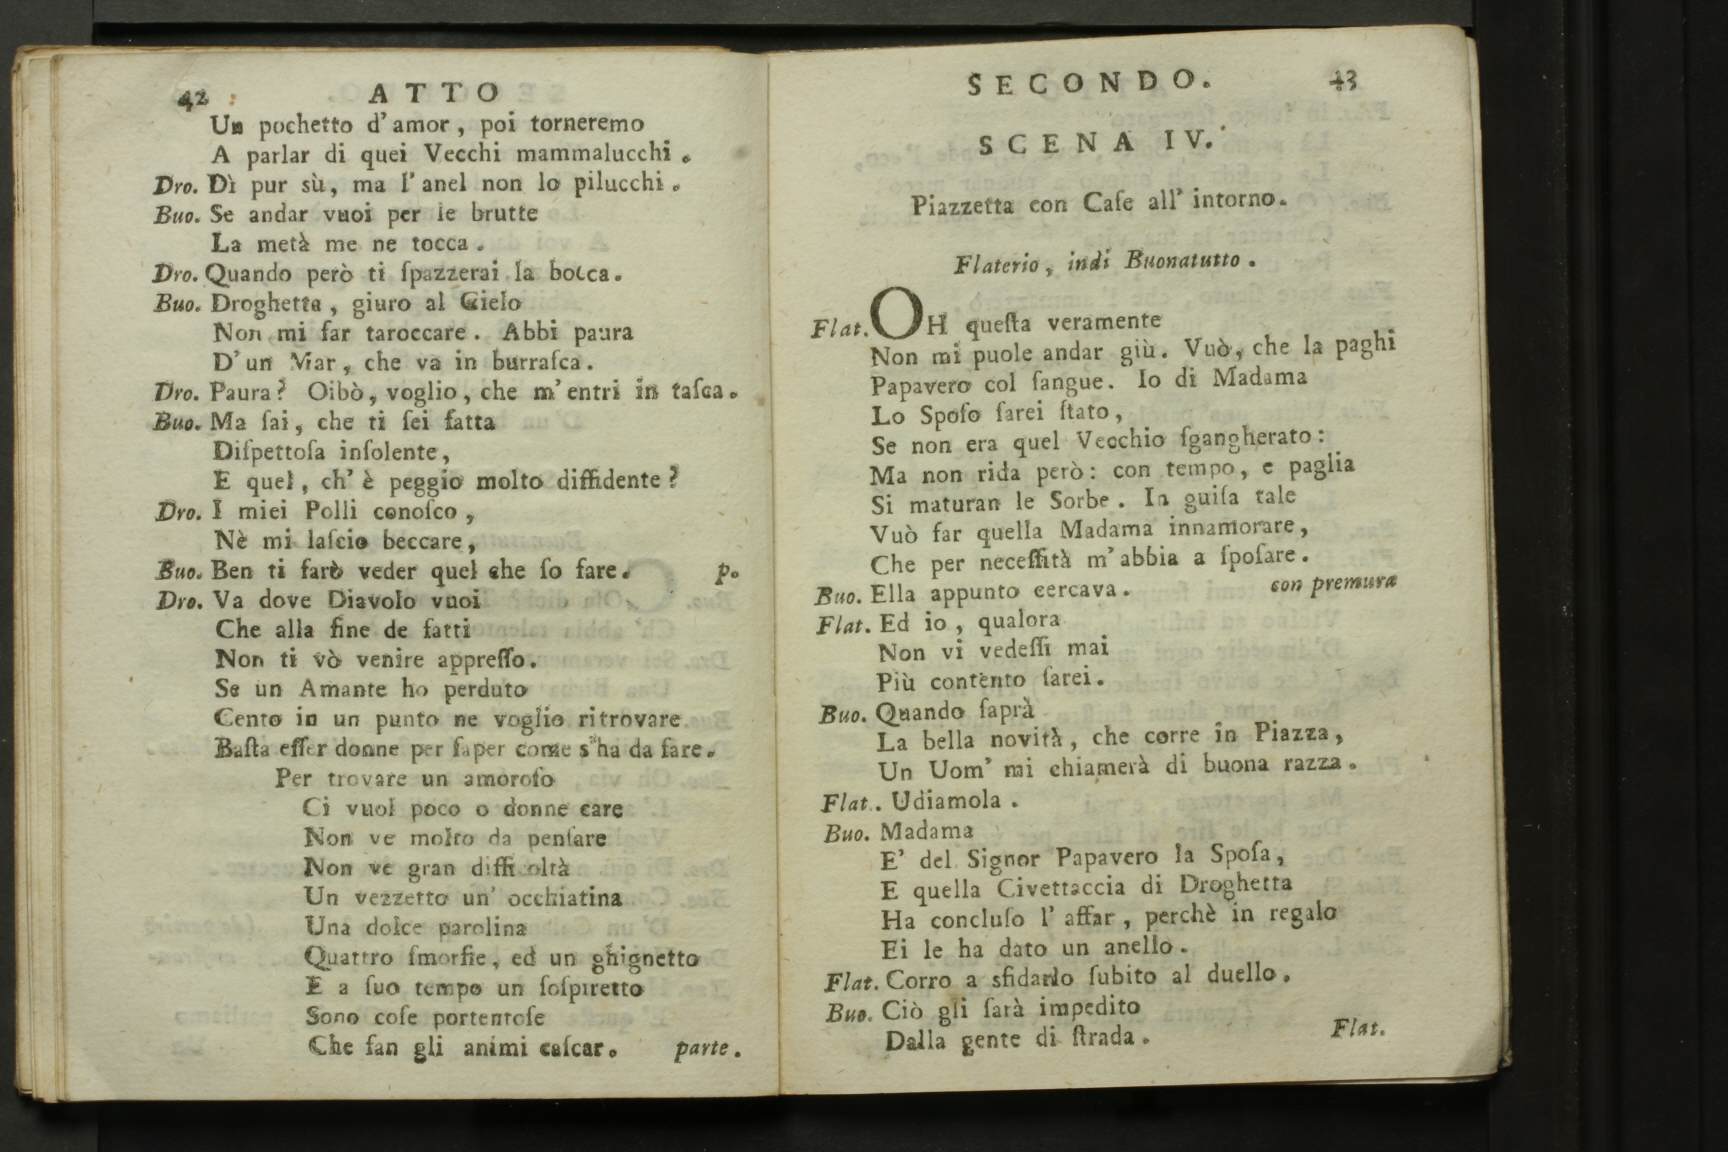 42 ATTO
Un pochetto d'amor, poi torneremo
A parlar di quei Vecchi mammalucchi.
Dro. Dì pur sù, ma l'anel non lo pilucchi.
Buo. Se andar vuoi per le brutte
La metà me ne tocca.
Dro. Quando però ti ſpazzerai la bocca.
Buo. Droghetta, giuro al Cielo
Non mi far taroccare. Abbi paura
D'un Mar, che va in burraſca.
Dro. Paura? Oibò, voglio, che m'entri in taſca.
Buo. Ma ſai, che ti ſei fatta
Diſpettoſa inſolente,
E quel, ch'è peggio molto diffidente?
Dro. I miei Polli conoſco,
Nè mi laſcio beccare,
Buo. Ben ti farò veder quel che ſo fare. p.
Dro. Va dove Diavolo vuoi
Che alla fine de fatti
Non ti vò venire appreſſo.
Se un Amante ho perduto
Cento in un punto ne voglio ritrovare
Baſta eſſer donne per ſaper come s'ha da fare.
Per trovare un amoroſo
Ci vuol poco o donne care
Non ve molto da penſare
Non ve gran difficoltà
Un vezzetto un' occhiatina
Una dolce parolina
Quattro ſmorfie, ed un ghignetto
E a ſuo tempo un ſoſpiretto
Sono coſe portentoſe
Che fan gli animi caſcar. parte.
SECONDO. 43
SCENA IV.
Piazzetta con Caſe all' intorno.
Flaterio, indi Buonatutto.
Flat. OH queſta veramente
Non mi puole andar giù. Vuò, che la paghi
Papavero col ſangue. Io di Madama
Lo Spoſo ſarei ſtato,
Se non era quel Vecchio ſgangherato:
Ma non rida però: con tempo, e paglia
Si maturan le Sorbe. In guiſa tale
Vuò far quella Madama innamorare,
Che per neceſſità m'abbia a ſpoſare.
Buo. Ella appunto cercava. con premura
Flat. Ed io, qualora
Non vi vedeſſi mai
Più contento ſarei.
Buo. Quando ſaprà
La bella novità, che corre in Piazza,
Un Uom' mi chiamerà di buona razza.
Flat. Udiamola.
Buo. Madama
E' del Signor Papavero la Spoſa,
E quella Civettaccia di Droghetta
Ha concluſo l' affar, perchè in regalo
Ei le ha dato un anello.
Flat. Corro a sfidarlo ſubito al duello.
Buo. Ciò gli ſarà impedito
Dalla gente di ſtrada.
Flat.